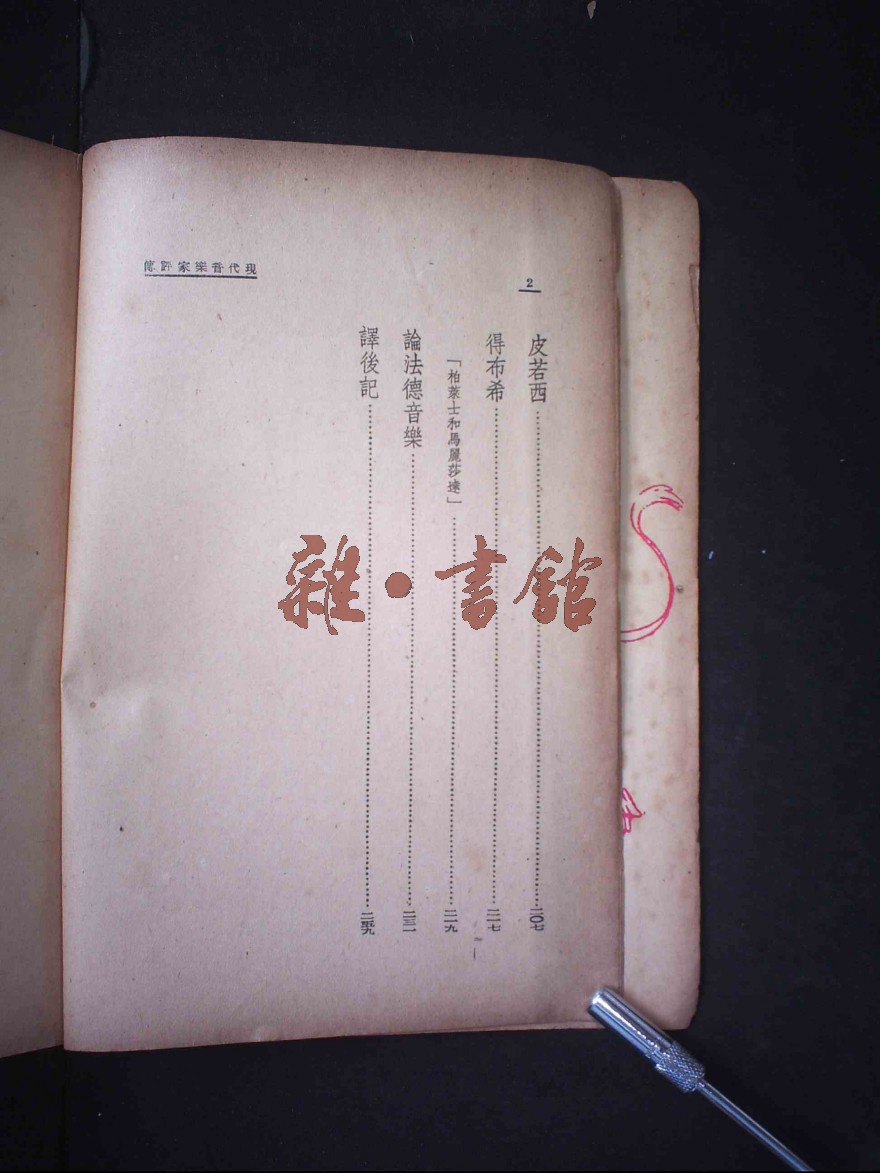 現代音樂家評傳
2
皮若西……二〇七
得布希……二一七
「柏萊士和馬麗莎達」……二一九
論法德音樂……二三一
譯後記……二五九
雜·書館